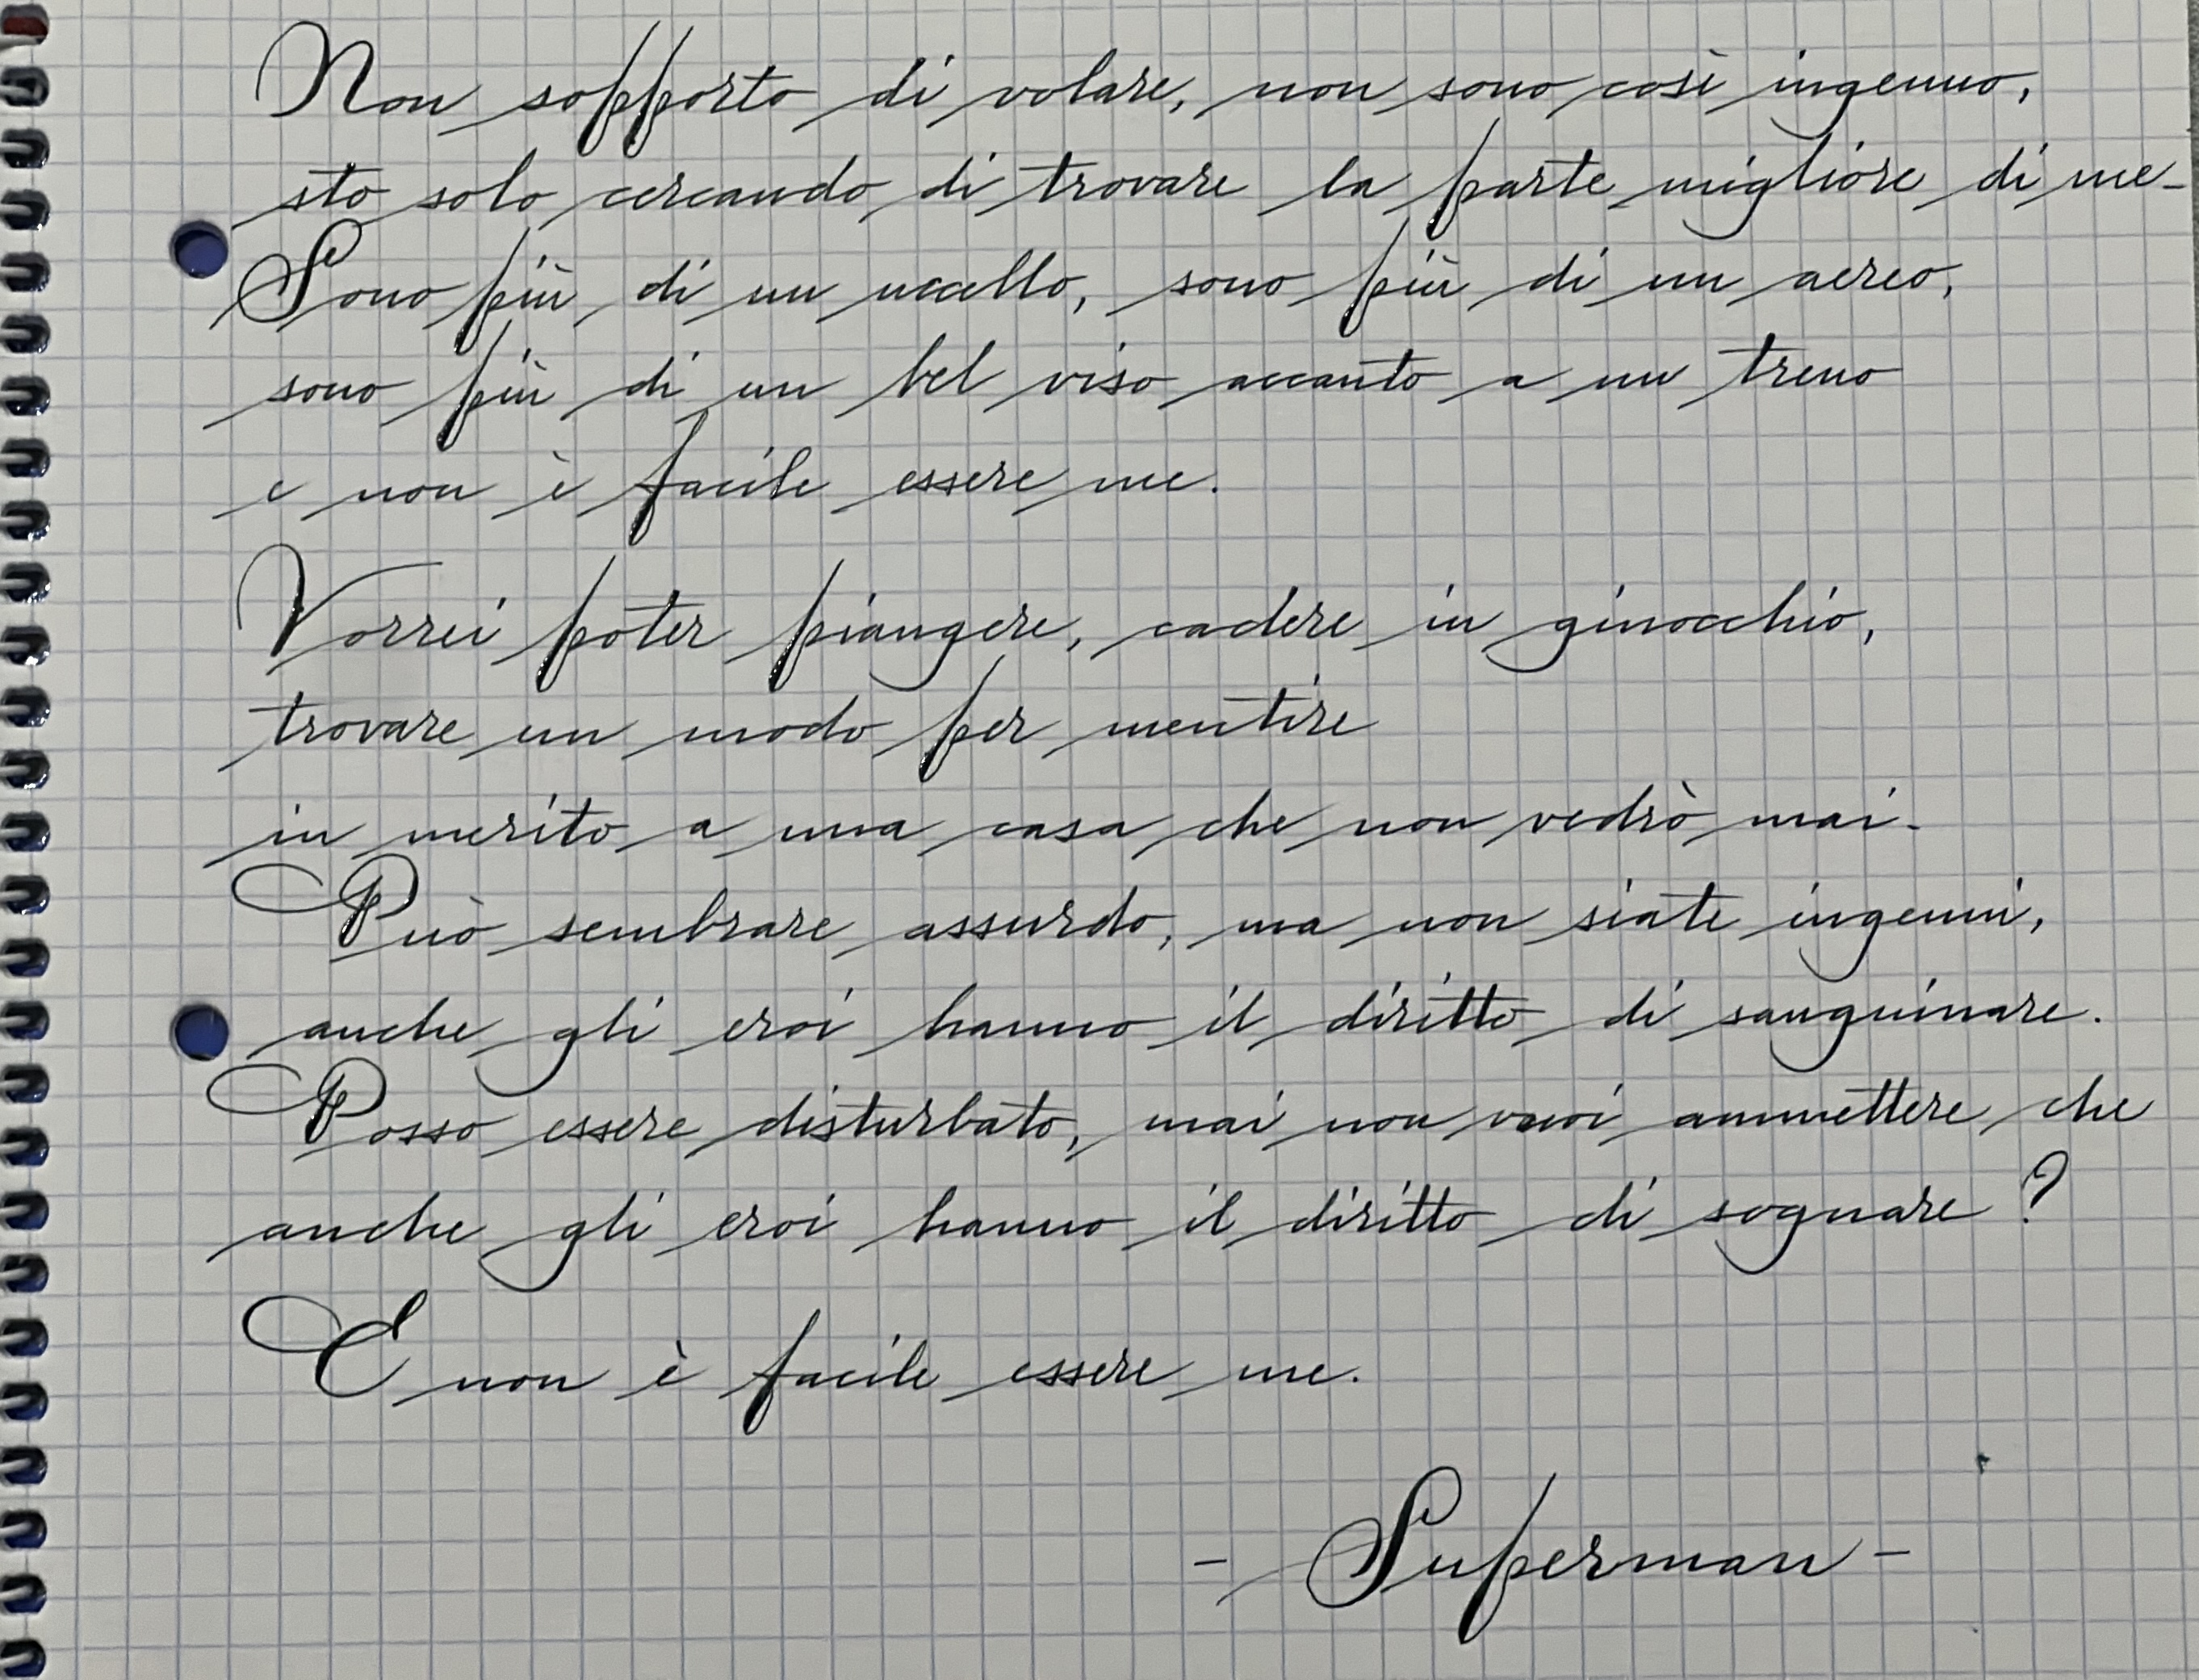 Non sopporto di volare, non sono così ingenuo,
sto solo cercando di trovare la parte migliore di me.
Sono più di un uccello, sono più di un aereo,
sono più di un bel viso accanto a un treno
e non è facile essere me.
Vorrei poter piangere, cadere in ginocchio,
trovare un modo per mentire
in merito a una casa che non vedrò mai.
Può sembrare assurdo, ma non siate ingenui,
anche gli eroi hanno il diritto di sanguinare.
Posso essere disturbato, mai non vuoi ammettere che
anche gli eroi hanno il diritto di sognare?
E non è facile essere me.
- Superman -